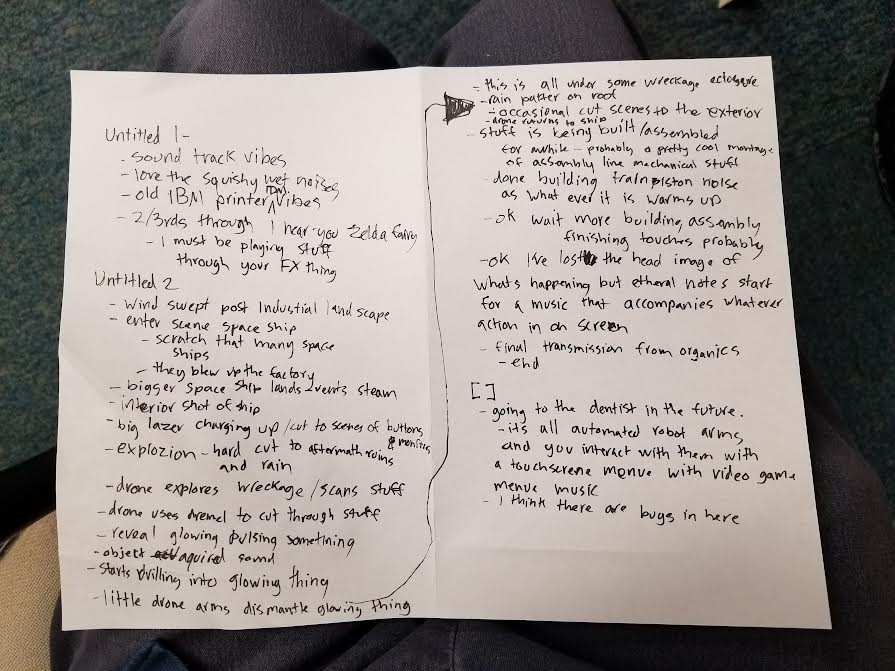 Untitled 1-
- sound track vibes
- love the squishy wet noises
- old IBM printer IDM vibes
- 2/3rds through I hear you Zelda fairy
- I must be playing stuff
through your FX thing
Untitled 2
- wind swept post industrial landscape
- enter scene space ship
- scratch that many space
ships
- they blew up the factory
- bigger space ship lands - vents steam
- interior shot of ship
- big lazer charging up / cut to scenes of buttons
& monitors
- explozion - hard cut to aftermath ruins
and rain
- drone explores wreckage / scans stuff
- drone uses dremel to cut through stuff
- reveal glowing pulsing something
- object aquired sound
- starts drilling into glowing thing
- little drone arms dismantle glowing thing
- this is all under some wreckage
- rain patter on roof
- occasional cut scenes to the exterior
- drone returns to ship
- stuff is being built/assembled
for awhile - probably a pretty cool montage
of assembly line mechanical stuff
- done building train piston noise
as what ever it is warms up
- ok wait more building assembly
finishing touches probably
- ok I've lost the head image of
whats happening but etheral notes start
for a music that accompanies whatever
action in on screen
- final transmission from organics
- end
[ ]
- going to the dentist in the future.
- its all automated robot arms,
and you interact with them with
a touchscrene menue with video game
menue music
- I think there are bugs in here